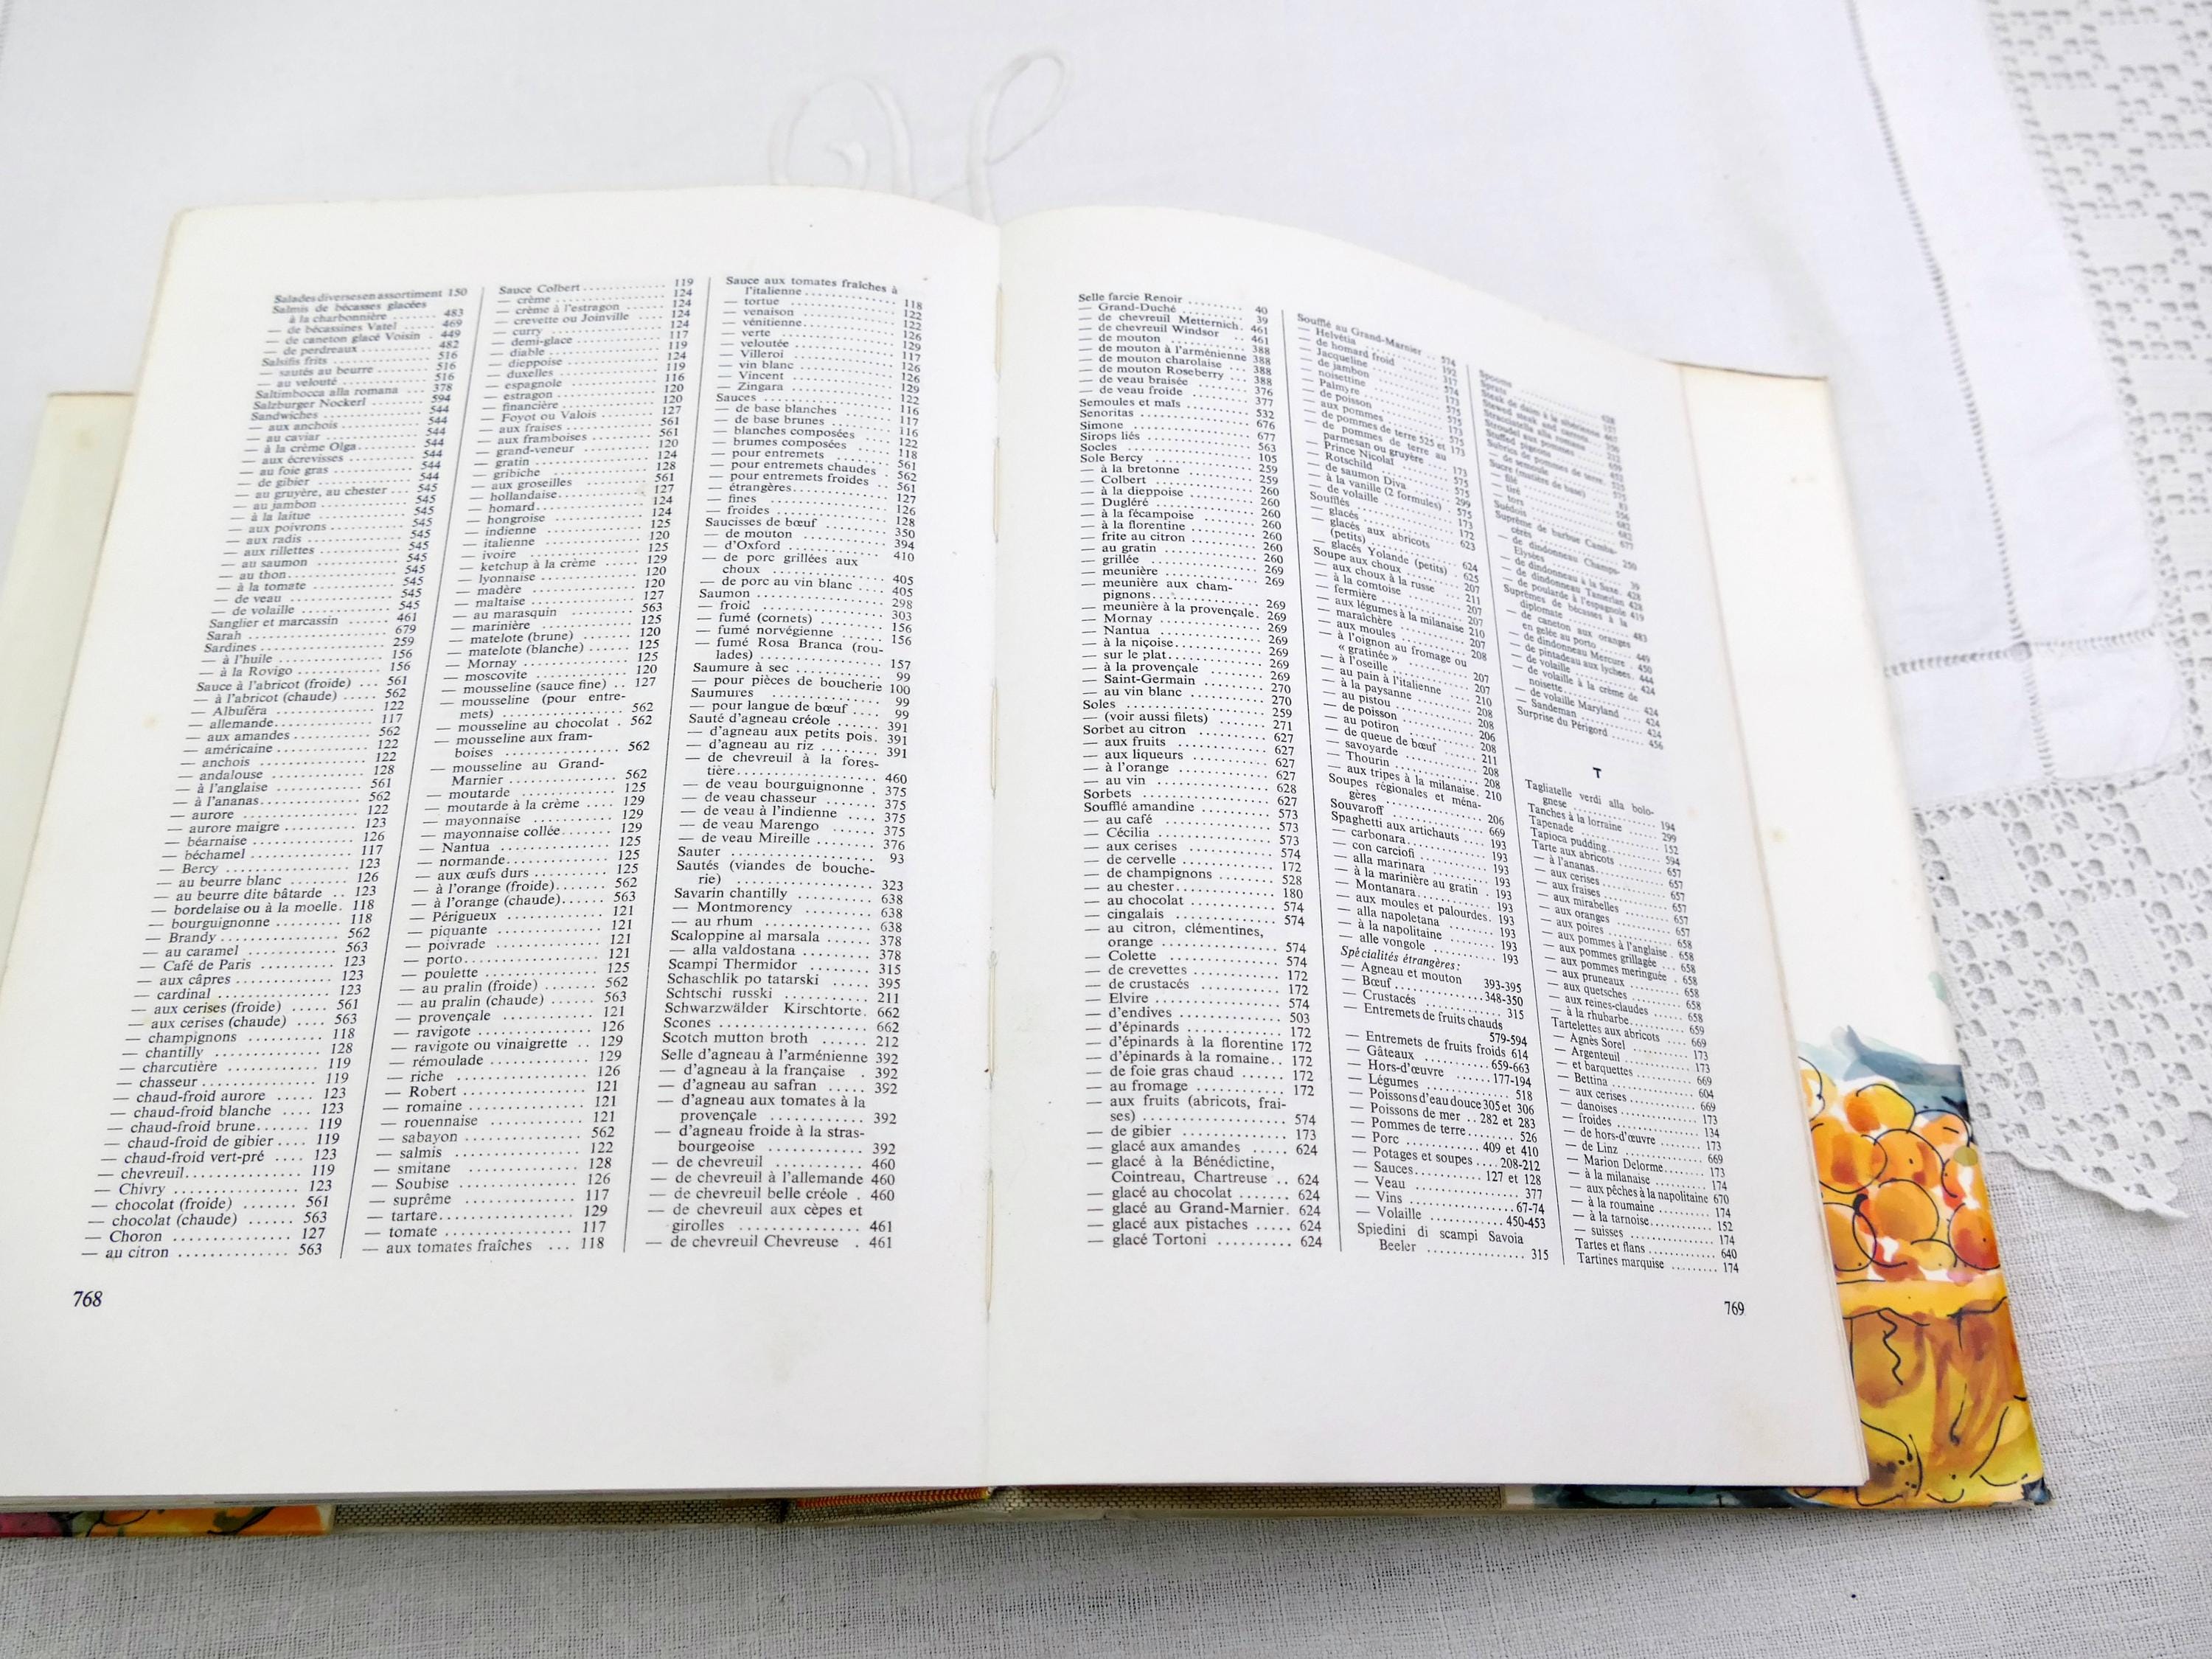 Salades diverses en assortiment 150
Salmis de bécasses glacées
à la charbonnière ........ 483
— de bécassines Vatel ...... 469
— de caneton glacé Voisin . 449
— de perdreaux ........... 482
Salsifis frits ............... 516
— sautés au beurre ........ 516
— au velouté ............. 516
Saltimbocca alla romana .... 378
Salzburger Nockerl ......... 594
Sandwiches ................ 544
— aux anchois ............ 544
— au caviar .............. 544
— à la crème Olga......... 544
— aux écrevisses .......... 544
— au foie gras ............ 544
— de gibier ............... 544
— au gruyère, au chester ... 545
— au jambon .............. 545
— à la laitue .............. 545
— aux poivrons ........... 545
— aux radis .............. 545
— aux rillettes ............ 545
— au saumon ............. 545
— au thon................ 545
— à la tomate ............ 545
— de veau ................ 545
— de volaille ............. 545
Sanglier et marcassin ....... 461
Sarah ..................... 679
Sardines ................... 259
— à l'huile ............... 156
— à la Rovigo ............ 156
Sauce à l'abricot (froide) ... 561
— à l'abricot (chaude) ..... 562
— Albuféra ............... 122
— allemande.............. 117
— aux amandes ........... 562
— américaine ............. 122
— anchois ................ 122
— andalouse .............. 128
— à l'anglaise ............. 561
— à l'ananas.............. 562
— aurore ................. 122
— aurore maigre .......... 123
— béarnaise .............. 126
— béchamel .............. 117
— Bercy .................. 123
— au beurre blanc ......... 126
— au beurre dite bâtarde .. 123
— bordelaise ou à la moelle. 118
— bourguignonne .......... 118
— Brandy ................. 562
— au caramel ............. 563
— Café de Paris ........... 123
— aux câpres ............. 123
— cardinal ................ 123
— aux cerises (froide) ...... 561
— aux cerises (chaude) ..... 563
— champignons ........... 118
— chantilly ............... 128
— charcutière ............. 119
— chasseur ............... 119
— chaud-froid aurore ...... 123
— chaud-froid blanche ..... 123
— chaud-froid brune....... 119
— chaud-froid de gibier .... 119
— chaud-froid vert-pré ..... 123
— chevreuil................ 119
— Chivry ................. 123
— chocolat (froide) ........ 561
— chocolat (chaude) ....... 563
— Choron ................. 127
— au citron ............... 563
Sauce Colbert .............. 119
— crème .................. 124
— crème à l'estragon ....... 124
— crevette ou Joinville ..... 124
— curry .................. 124
— demi-glace ............. 117
— diable .................. 119
— dieppoise .............. 124
— duxelles ................ 119
— espagnole .............. 116
— estragon ................ 120
— financière .............. 120
— Foyot ou Valois ......... 127
— aux fraises ............. 561
— aux framboises ......... 561
— grand-veneur ........... 120
— gratin .................. 124
— gribiche ................ 128
— aux groseilles ........... 561
— hollandaise............. 127
— homard................. 124
— hongroise .............. 124
— indienne ............... 125
— italienne ............... 120
— ivoire .................. 125
— ketchup à la crème ...... 129
— lyonnaise ............... 120
— madère ................. 120
— maltaise ............... 127
— au marasquin ........... 563
— marinière .............. 125
— matelote (brune) ........ 120
— matelote (blanche) ....... 125
— Mornay ................ 125
— moscovite .............. 120
— mousseline (sauce fine) .. 127
— mousseline (pour entre-
mets) .................. 562
— mousseline au chocolat . 562
— mousseline aux fram-
boises .................. 562
— mousseline au Grand-
Marnier ................ 562
— moutarde .............. 125
— moutarde à la crème .... 129
— mayonnaise ............ 129
— mayonnaise collée....... 129
— Nantua ................ 125
— normande.............. 125
— aux œufs durs .......... 125
— à l'orange (froide)....... 562
— à l'orange (chaude)...... 563
— Périgueux .............. 121
— piquante ............... 121
— poivrade ............... 121
— porto.................. 121
— poulette ................ 125
— au pralin (froide) ....... 562
— au pralin (chaude) ...... 563
— provençale ............. 121
— ravigote ................ 126
— ravigote ou vinaigrette .. 129
— rémoulade ............. 129
— riche .................. 126
— Robert ................. 121
— romaine ................ 121
— rouennaise ............. 121
— sabayon ................ 562
— salmis ................. 122
— smitane ................ 128
— Soubise ................ 126
— suprême ............... 117
— tartare................. 129
— tomate ................. 117
— aux tomates fraîches ... 118
Sauce aux tomates fraîches à
l'italienne ............... 118
— tortue ................. 122
— venaison ............... 122
— vénitienne.............. 126
— verte .................. 129
— veloutée ............... 117
— Villeroi ................ 126
— vin blanc .............. 126
— Vincent ................ 129
— Zingara ................ 122
Sauces .................... 116
— de base blanches ........ 117
— de base brunes ......... 116
— blanches composées ..... 122
— brumes composées ....... 118
— pour entremets ......... 561
— pour entremets chaudes . 562
— pour entremets froides .. 561
— étrangères.............. 127
— fines .................. 126
— froides ................. 128
Saucisses de bœuf .......... 350
— de mouton ............. 394
— d'Oxford ............... 410
— de porc grillées aux
choux .................. 405
— de porc au vin blanc .... 405
Saumon .................... 298
— froid .................. 303
— fumé (cornets) .......... 156
— fumé norvégienne ....... 156
— fumé Rosa Branca (rou-
lades) .................. 157
Saumure à sec .............. 99
— pour pièces de boucherie 100
Saumures .................. 99
— pour langue de bœuf .... 99
Sauté d'agneau créole ....... 391
— d'agneau aux petits pois. 391
— d'agneau au riz ......... 391
— de chevreuil à la fores-
tière.................... 460
— de veau bourguignonne . 375
— de veau chasseur ....... 375
— de veau à l'indienne .... 375
— de veau Marengo ....... 375
— de veau Mireille ........ 376
Sauter ..................... 93
Sautés (viandes de bouche-
rie) .................... 323
Savarin chantilly ........... 638
— Montmorency .......... 638
— au rhum ............... 638
Scaloppine al marsala ....... 378
— alla valdostana ......... 378
Scampi Thermidor .......... 315
Schaschlik po tatarski ...... 395
Schtschi russki ............. 211
Schwarzwälder Kirschtorte. 662
Scones .................... 662
Scotch mutton broth ........ 212
Selle d'agneau à l'arménienne 392
— d'agneau à la française . 392
— d'agneau au safran ..... 392
— d'agneau aux tomates à la
provençale .............. 392
— d'agneau froide à la stras-
bourgeoise .............. 392
— de chevreuil ............ 460
— de chevreuil à l'allemande 460
— de chevreuil belle créole . 460
— de chevreuil aux cèpes et
girolles ................. 461
— de chevreuil Chevreuse . 461
768
Selle farcie Renoir .......... 40
— Grand-Duché ........... 39
— de chevreuil Metternich. 461
— de chevreuil Windsor ... 461
— de mouton ............. 388
— de mouton à l'arménienne 388
— de mouton charolaise ... 388
— de mouton Roseberry ... 388
— de veau braisée ......... 376
— de veau froide .......... 377
Semoules et maïs ........... 532
Senoritas ................... 676
Simone .................... 677
Sirops liés .................. 563
Socles ..................... 105
Sole Bercy ................. 259
— à la bretonne ........... 259
— Colbert ................ 260
— à la dieppoise .......... 260
— Dugléré ................ 260
— à la fécampoise ......... 260
— à la florentine .......... 260
— frite au citron .......... 260
— au gratin .............. 260
— grillée ................. 269
— meunière .............. 269
— meunière aux cham-
pignons................. 269
— meunière à la provençale. 269
— Mornay ................ 269
— Nantua ................ 269
— à la niçoise............. 269
— sur le plat.............. 269
— à la provençale ......... 269
— Saint-Germain .......... 270
— au vin blanc ........... 270
Soles ...................... 259
— (voir aussi filets) ....... 271
Sorbet au citron ............ 627
— aux fruits .............. 627
— aux liqueurs ........... 627
— à l'orange .............. 627
— au vin ................. 628
Sorbets .................... 627
Soufflé amandine ........... 573
— au café ................ 573
— Cécilia ................. 573
— aux cerises ............. 574
— de cervelle ............. 172
— de champignons ........ 528
— au chester.............. 180
— au chocolat ............ 574
— cingalais ............... 574
— au citron, clémentines,
orange ................. 574
— Colette ................ 574
— de crevettes ............ 172
— de crustacés ............ 172
— Elvire .................. 574
— d'endives ............... 503
— d'épinards .............. 172
— d'épinards à la florentine 172
— d'épinards à la romaine.. 172
— de foie gras chaud ...... 172
— au fromage ............. 172
— aux fruits (abricots, frai-
ses) .................... 574
— de gibier ............... 173
— glacé aux amandes ..... 624
— glacé à la Bénédictine,
Cointreau, Chartreuse .. 624
— glacé au chocolat ....... 624
— glacé au Grand-Marnier. 624
— glacé aux pistaches ..... 624
— glacé Tortoni ........... 624
Soufflé au Grand-Marnier .. 574
— Helvétia ............... 192
— de homard froid ........ 317
— Jacqueline .............. 574
— de jambon .............. 173
— noisettine .............. 575
— Palmyre ................ 575
— de poisson .............. 173
— aux pommes ............ 575
— de pommes de terre 525 et 173
— de pommes de terre au
parmesan ou gruyère .... 173
— Prince Nicolaï .......... 575
— Rotschild ............... 575
— de saumon Diva ........ 299
— à la vanille (2 formules) . 575
— de volaille .............. 173
Soufflés .................... 172
— glacés .................. 623
— glacés aux abricots
(petits) ................. 624
— glacés Yolande (petits) . 625
Soupe aux choux ........... 211
— aux choux à la russe ... 207
— à la comtoise ........... 207
— fermière ................ 207
— aux légumes à la milanaise 210
— maraîchère ............. 207
— aux moules ............. 208
— à l'oignon au fromage ou
« gratinée » ............. 207
— à l'oseille .............. 207
— au pain à l'italienne ..... 210
— à la paysanne .......... 208
— au pistou .............. 208
— de poisson ............. 206
— au potiron ............. 208
— de queue de bœuf ...... 211
— savoyarde .............. 208
— Thourin ................ 208
— aux tripes à la milanaise. 210
Soupes régionales et ména-
gères ................... 206
Souvaroff .................. 669
Spaghetti aux artichauts .... 193
— carbonara .............. 193
— con carciofi ............ 193
— alla marinara .......... 193
— à la marinière au gratin . 193
— Montanara ............. 193
— aux moules et palourdes. 193
— alla napoletana ......... 193
— à la napolitaine ......... 193
— alle vongole ............ 193
Spécialités étrangères:
— Agneau et mouton 393-395
— Bœuf ................ 348-350
— Crustacés .............. 315
— Entremets de fruits chauds
579-594
— Entremets de fruits froids 614
— Gâteaux ........ 659-663
— Hors-d'œuvre ...... 177-194
— Légumes ............... 518
— Poissons d'eau douce 305 et 306
— Poissons de mer .. 282 et 283
— Pommes de terre........ 526
— Porc .......... 409 et 410
— Potages et soupes .... 208-212
— Sauces......... 127 et 128
— Veau .................. 377
— Vins ................. 67-74
— Volaille ........... 450-453
Spiedini di scampi Savoia
Beeler .................. 315
Spooms
Surprise du Périgord ...... 456
T
Tagliatelle verdi alla bolo-
gnese .................. 194
Tanches à la lorraine ....... 299
Tapenade .................. 152
Tapioca pudding............ 594
Tarte aux abricots .......... 657
— à l'ananas.............. 657
— aux cerises .............
— aux fraises ............. 657
— aux mirabelles .........
— aux oranges ............
— aux poires ..............
— aux pommes à l'anglaise . 658
— aux pommes grillagée ... 658
— aux pommes meringuée . 658
— aux pruneaux ........... 658
— aux quetsches .......... 658
— aux reines-claudes ...... 658
— à la rhubarbe........... 659
Tartelettes aux abricots .... 669
— Agnès Sorel ............ 173
— Argenteuil .............. 173
— et barquettes ........... 669
— Bettina ................. 604
— aux cerises ............. 669
— danoises ............... 173
— froides ................. 134
— de hors-d'œuvre ........ 173
— de Linz ................ 669
— Marion Delorme......... 173
— à la milanaise .......... 174
— aux pêches à la napolitaine 670
— à la roumaine .......... 174
— à la tarnoise............ 152
— suisses ................. 174
Tartes et flans .............. 640
Tartines marquise .......... 174
769